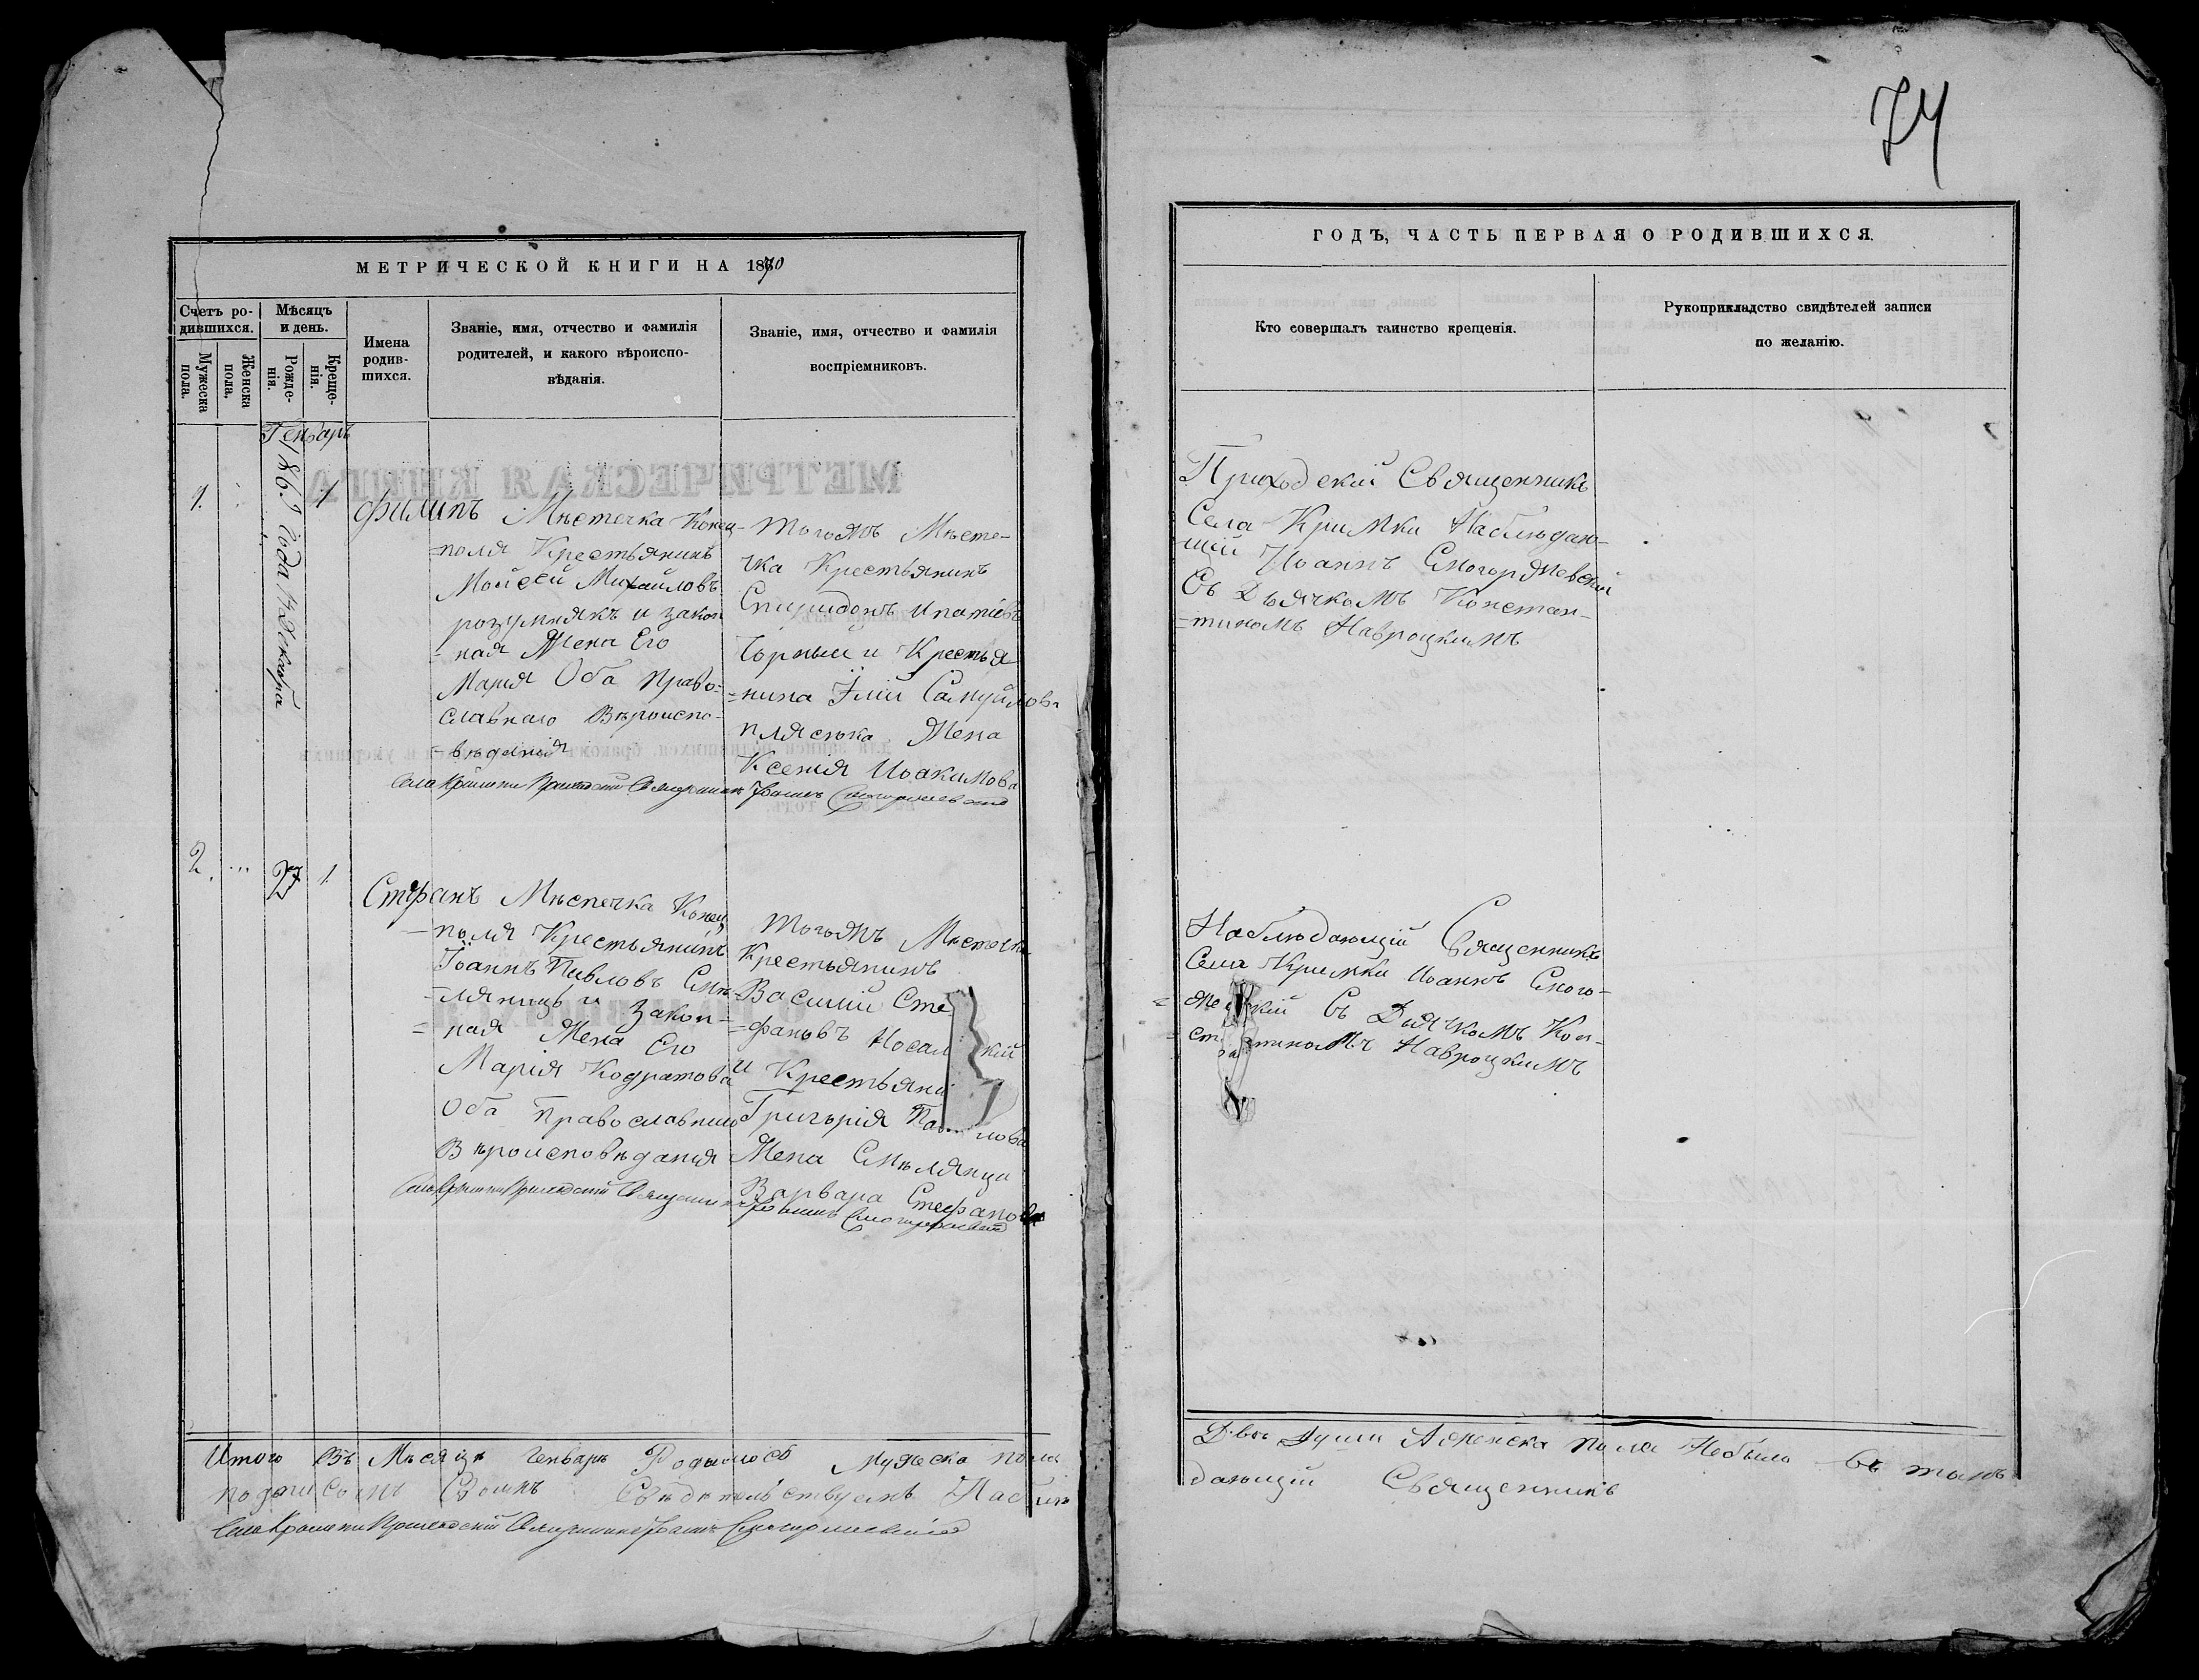 74
МЕТРИЧЕСКОЙ КНИГИ НА 1870
Счетъ ро-
дившихся.
Мужеска
пола.
Женска
пола.
Мѣсяцъ
и день.
Рожде-
нія.
Креще-
нія.
Имена
родив-
шихся.
Званіе, имя, отчество и фамилія
родителей, и какого вѣроиспо-
вѣданія.
Званіе, имя, отчество и фамилія
воспріемниковъ.
Генварь
1.
1869 Года 14 Декабря
1
Филипъ
Мѣстечка Конец-
=поля Крестьянинъ
Мойсей Михайловъ
розумнякъ и закон
=ная Жена Его
Мария Оба право-
славнаго Вѣроиспо-
=вѣдания
Тогожъ Мѣсте-
чка Крестьянинъ
Спиридонъ Ипатіевъ
Чорный и Крестья
=нина Іліи Самуйлова
пляснка Жена
Ксенія Иоакимова
Села Кримки Приходскій Священникъ Іоаннъ Смогоржевскій
2.
27
1
Стефанъ
Мѣстечка Конец
=поля Крестьянинъ
Іоаннъ Павловъ Смѣ-
=лянецъ и Закон-
=ная Жена Его
Марія Кодратова
Оба Православнаго
Вѣроисповѣдания
Тогожъ Мѣстечка
Крестьянинъ
Василій Сте
=фановъ Носал кій
и Крестьяни
Григорія Пав лова
Жена Смѣлянца
Варвара Стефанова
Села Кримки Приходскій Священникъ Іоаннъ Смогоржевскій
Итого Въ Мѣсяцѣ Генварѣ Родилось Мужеска пола
подписомъ Своимъ Свѣдѣтельствуемъ Наблю
Села Кримки Приходскій Священникъ Іоаннъ Смогоржевскій
ГОДЪ, ЧАСТЬ ПЕРВАЯ О РОДИВШИХСЯ.
Кто совершалъ таинство крещенія.
Рукоприкладство свидѣтелей записи
по желанію.
Приходский Священникъ
Села Кримки Наблюдаю-
щій Иоаннъ Смогоржевский
Съ Дьячкомъ Констан-
=тиномъ Навроцкимъ
Наблюдающій Священникъ
Села Кримки Иоаннъ Смого-
= же кій Съ Дьячкомъ Кон-
= ст антиномъ Навроцкимъ
Двѣ Души Аженска пола Небыло въ томъ
дающий Священникъ